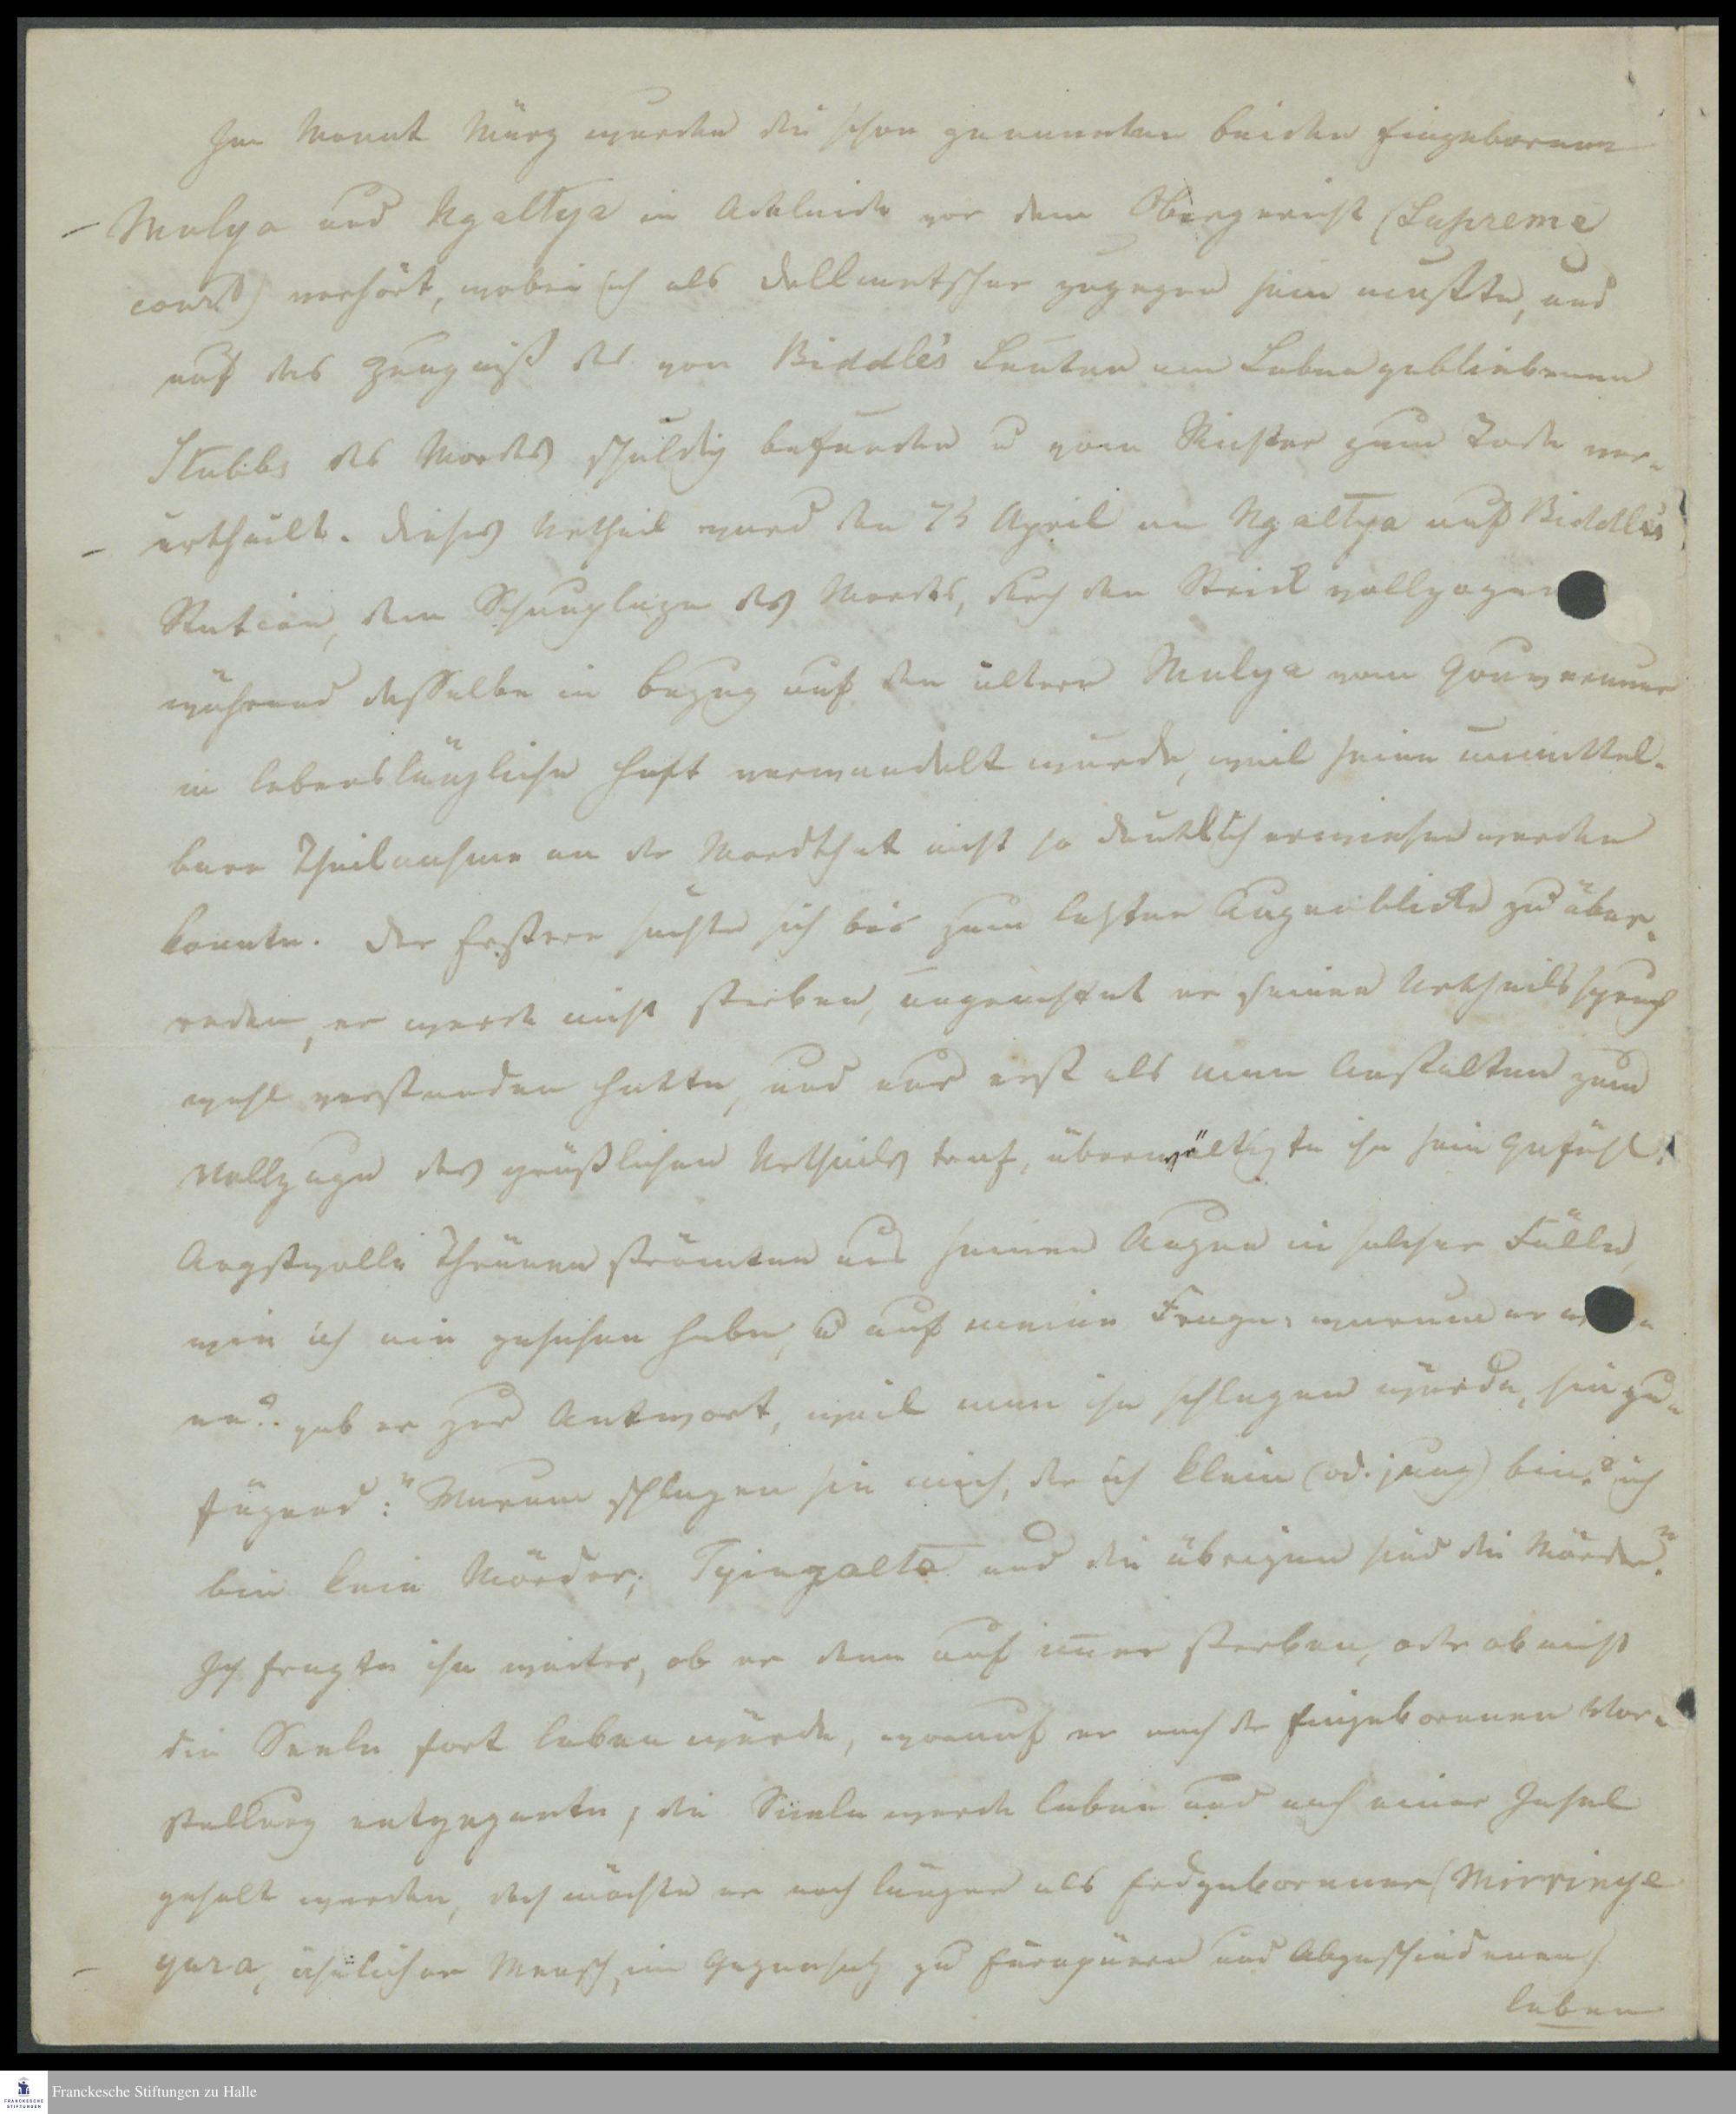 Im Monat März wurden die schon genannten beiden Eingebornen
Mulya und Ngaltya in Adelaide vor dem Obergericht (Supreme
court) verhört, wobei ich als Dollmetscher zugegen sein mußte, und
auf das Zeugniß des von Biddle's Leuten am Leben gebliebenen
Stubbs des Mordes schuldig befunden u vom Richter zum Tode ver-
urtheilt. Dieses Urtheil ward den 7ⁿ April an Ngaltya auf Biddle's
Station, dem Schauplaze des Mordes, durch den Strick vollzogen
während dasselbe in Bezug auf den ältern Mulya vom Gouverneur
in lebenslängliche Haft verwandelt wurde, weil seine unmittel-
bare Theilnahme an der Mordthat nicht so deutlich erwiesen werden
konnte. Der Erstere suchte sich bis zum letzten Augenblicke zu über-
reden, er werde nicht sterben, ungeachtet er seinen Urtheilsspruch
wohl verstanden hatte, und nur erst als man Anstalten zum
Vollzuge des gräßlichen Urtheils traf, überwältigte ihn sein Gefühl.
Angstvolle Thränen strömten aus seinen Augen in solcher Fülle,
wie ich nie gesehen habe, u auf meine Frage: warum er
ne? gab er zur Antwort, weil man ihn schlagen würde, hinzu-
fügend: "Warum schlagen sie mich, der ich klein (od. jung) bin? ich
bin kein Mörder; Tyingalta und die übrigen sind die Mörder."
Ich fragte ihn weiter, ob er denn auf immer sterben, oder ob nicht
die Seele fort leben würde, worauf er nach der Eingebornen Vor-
stellung entgegnete, die Seele werde leben und nach einer Insel
geholt werden, doch möchte er noch länger als Erdgeborener (Mirringe
yura, ähnlicher Mensch, im Gegensatz zu Europäern und Abgeschiedenen)
leben
Franckesche Stiftungen zu Halle
FRANCKESCHE
STIFTUNGEN